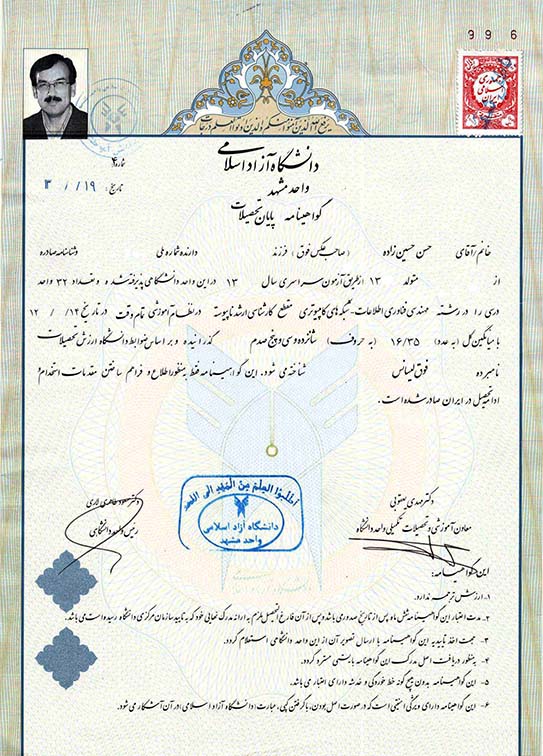 9 9 6
یرفع الله الذین آمنوا منکم والذین اوتوا العلم درجات
جمهوری اسلامی ایران
دانشگاه آزاد اسلامی
واحد مشهد
گواهینامه پایان تحصیلات
شماره: ۴
تاریخ: ۱۹/ /
خانم/آقای حسن حسین زاده (صاحب عکس فوق) فرزند دارنده شماره ملی و شناسنامه صادره
از متولد ۱۳ از طریق آزمون سراسری سال ۱۳ در این واحد دانشگاهی پذیرفته شده و تعداد ۳۲ واحد
درسی را در رشته مهندسی فناوری اطلاعات-شبکه های کامپیوتری مقطع کارشناسی ارشد ناپیوسته در نظام آموزشی تمام وقت در تاریخ ۱۴/ / ۱۲
با میانگین کل (به عدد) ۱۶/۳۵ (به حروف) شانزده و سی و پنج صدم گذرانیده و بر اساس ضوابط دانشگاه ارزش تحصیلات
نامبرده فوق لیسانس شناخته می شود. این گواهینامه فقط به منظور اطلاع و فراهم ساختن مقدمات استخدام/
ادامه تحصیل در ایران صادر شده است.
دکتر مهدی یعقوبی
معاون آموزشی و تحصیلات تکمیلی واحد دانشگاه
اطلبوا العلم من المهد الی اللحد
دانشگاه آزاد اسلامی
واحد مشهد
دکتر محمود طاهری لاری
رئیس واحد دانشگاهی
این گواهینامه:
۱. ارزش ترجمه ندارد.
۲. مدت اعتبار این گواهینامه شش ماه پس از تاریخ صدور می باشد و پس از آن فارغ التحصیل ملزم به ارائه مدرک نهایی خود که به تایید سازمان مرکزی دانشگاه رسیده است می باشد.
۳. جهت اخذ تاییدیه این گواهینامه با ارسال تصویر آن از این واحد دانشگاهی استعلام گردد.
۴. به منظور دریافت اصل مدرک این گواهینامه بایستی مسترد گردد.
۵- این گواهینامه بدون هیچ گونه خط خوردگی و خدشه دارای اعتبار می باشد.
۶- این گواهینامه دارای ویژگی امنیتی است که در صورت اصل بودن، با گرفتن کپی، عبارت: دانشگاه آزاد اسلامی: در آن آشکار می شود.